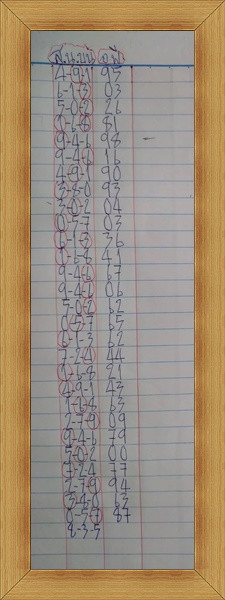 4-9-1 95
6-1-3 03
5-0-2 26
2-6-8 81
9-4-6 98
9-4-6 16
4-9-1 90
3-8-0 93
3-0-2 04
0-5-7 03
6-1-3 36
1-6-8 41
9-4-6 67
9-4-6 06
5-0-2 62
0-5-7 65
6-1-3 62
7-2-4 44
1-6-8 21
4-9-1 43
1-6-8 63
2-7-9 09
9-4-6 79
5-0-2 00
7-2-4 77
2-7-9 94
3-4-8 63
0-5-7 87
8-3-5